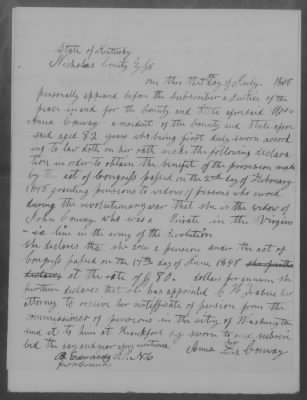 State of Kentucky
Nicholas County
on this day of July 1848
personally appeared before the subscriber a Justice of the
peace in and for the County and State aforesaid Mrs
Anna Conway a resident of the County and State afore
said aged 82 years who being first duly sworn accord
ing to law doth on her oath make the following declara
tion in order to obtain the benefit of the provision made
by the act of Congress passed on the 2nd day of February
1848 granting pensions to widows of persons who served
during the revolutionary war that she is the widow of
John Conway who was a Private in the Virgin
ia line in the army of the Revolution
she declares that she drew a pension under the act of
Congress passed on the 17th day of June 1844
at the rate of $ 80 dollars per annum she
further declares that she has appointed her
attorney to receive her certificate of pension from the
commissioner of pensions in the city of Washington
and it to him at sworn to and subscri
bed the day and year above mentioned
her
Anna Conway
mark